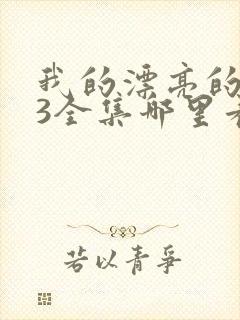 我的漂亮的
3全集哪里
若以青争